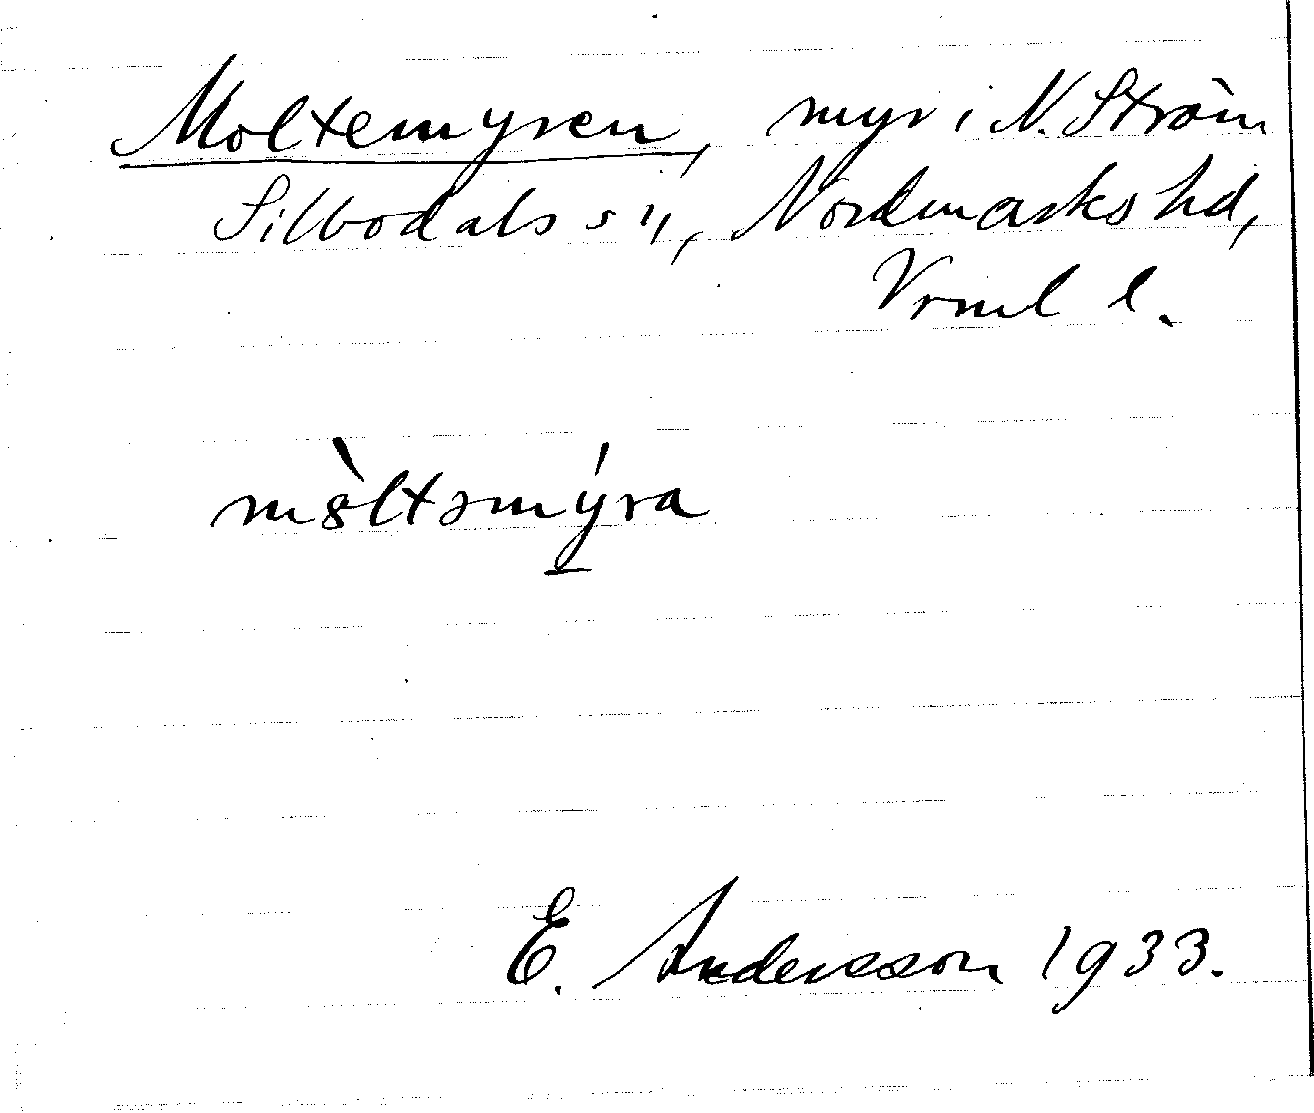 Moltemyren, myr i N. Ström
Silbodals sn, Nordmarks hd,
Vrml l.
mòltəmýra
E. Andersson 1933.